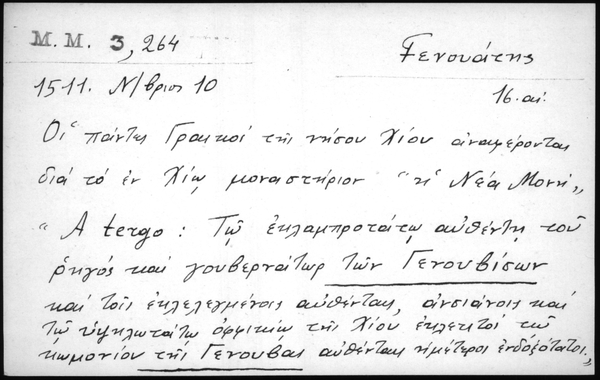 M. M. 3, 264
Γενουάτης
1511. Ν/βριος 10
16. αἰ.
Οἱ πάντες Γραικοί τῆς νήσου Χίου ἀναφέρονται
διά τό ἐν Χίῳ μοναστήριον "ἡ Νέα Μονή"
"A tergo : Τῷ ἐκλαμπροτάτῳ αὐθέντῃ τοῦ
ῥηγός καί γουβερνάτωρ τῶν Γενουβίσων
καί τοῖς ἐκλελεγμένοις αὐθένταις, ἀνσιάνοις καί
τῷ ὑψηλωτάτῳ ὀφφικίῳ τῆς Χίου ἐκλεκτοί τῶ
κωμονίου τῆς Γενούβας αὐθένταις ἡμέτεροι ἐνδοξότατοι"